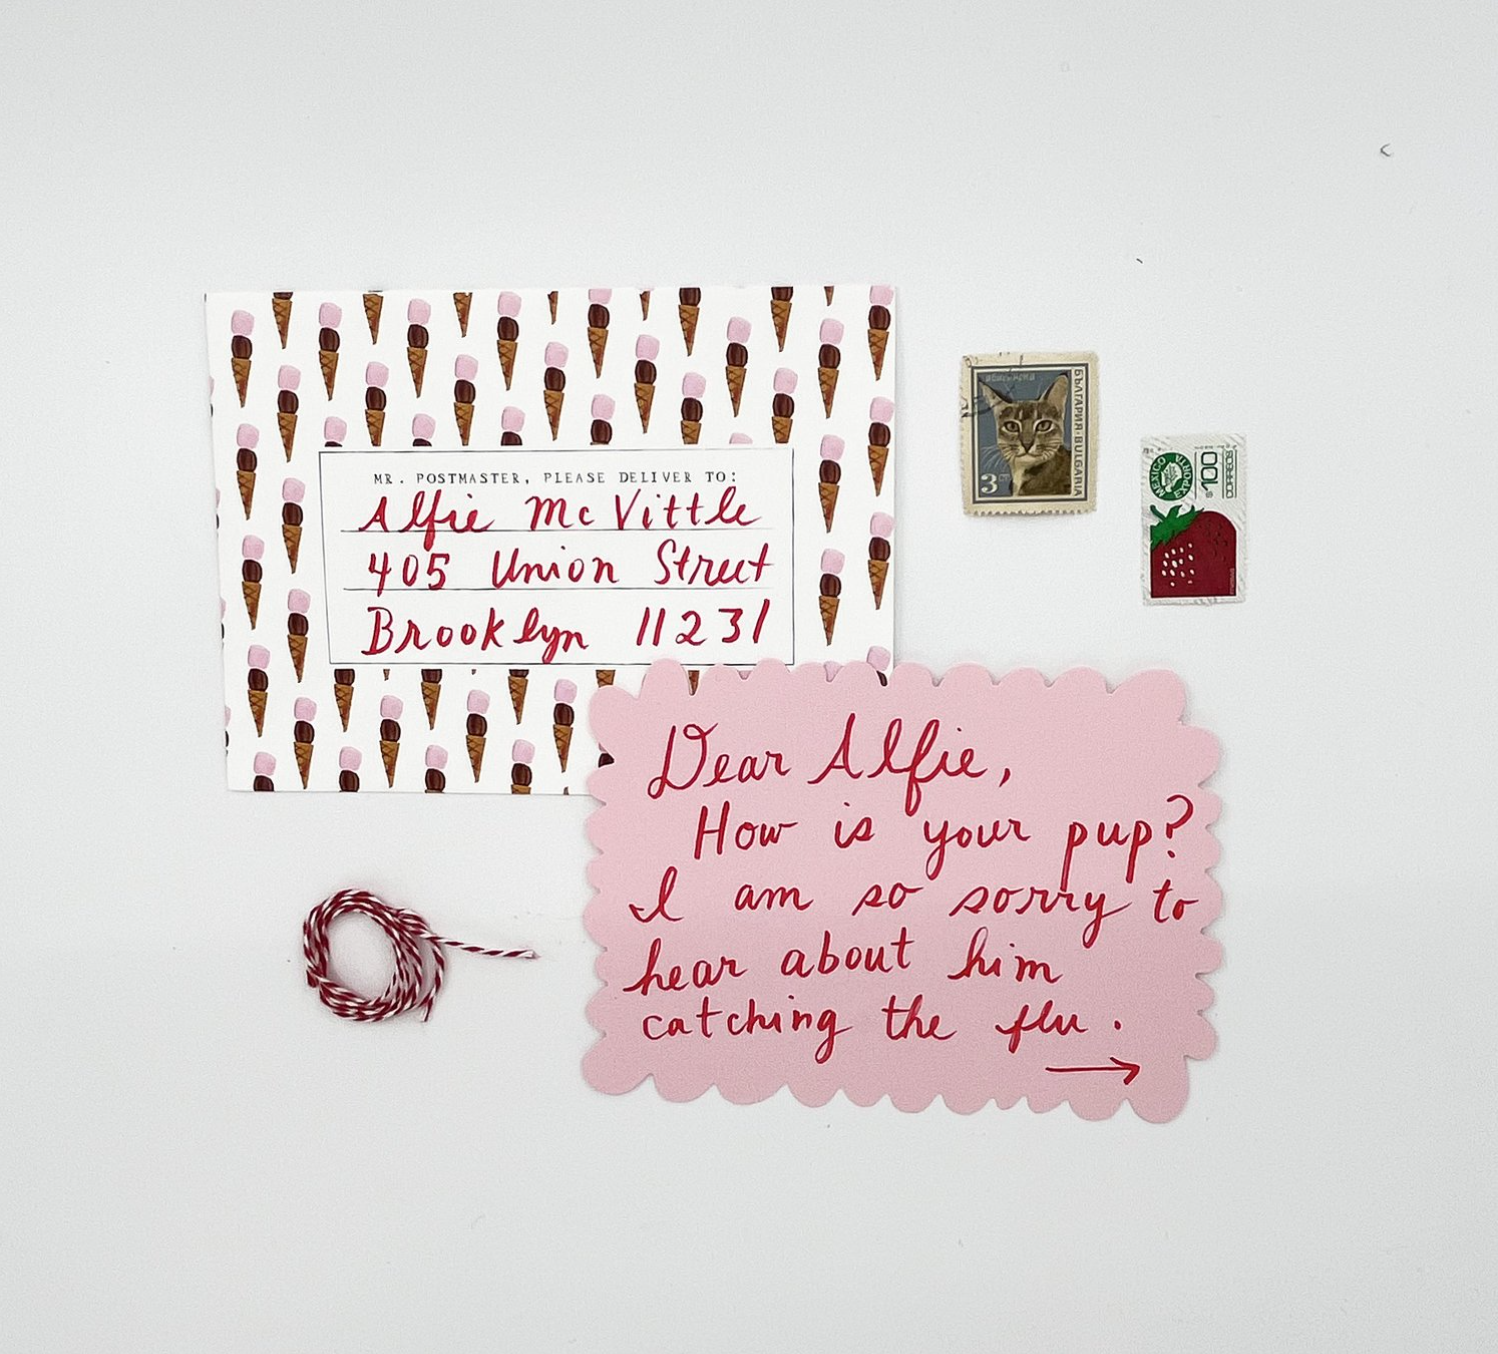 MR. POSTMASTER, PLEASE DELIVER TO:
Alfie McVittle
405 Union Street
Brooklyn 11231
БЪЛГАРИЯ·BULGARIA
3
MEXICO EXPORTA
$100
CORREOS
Dear Alfie,
How is your pup?
I am so sorry to
hear about him
catching the flu.
→